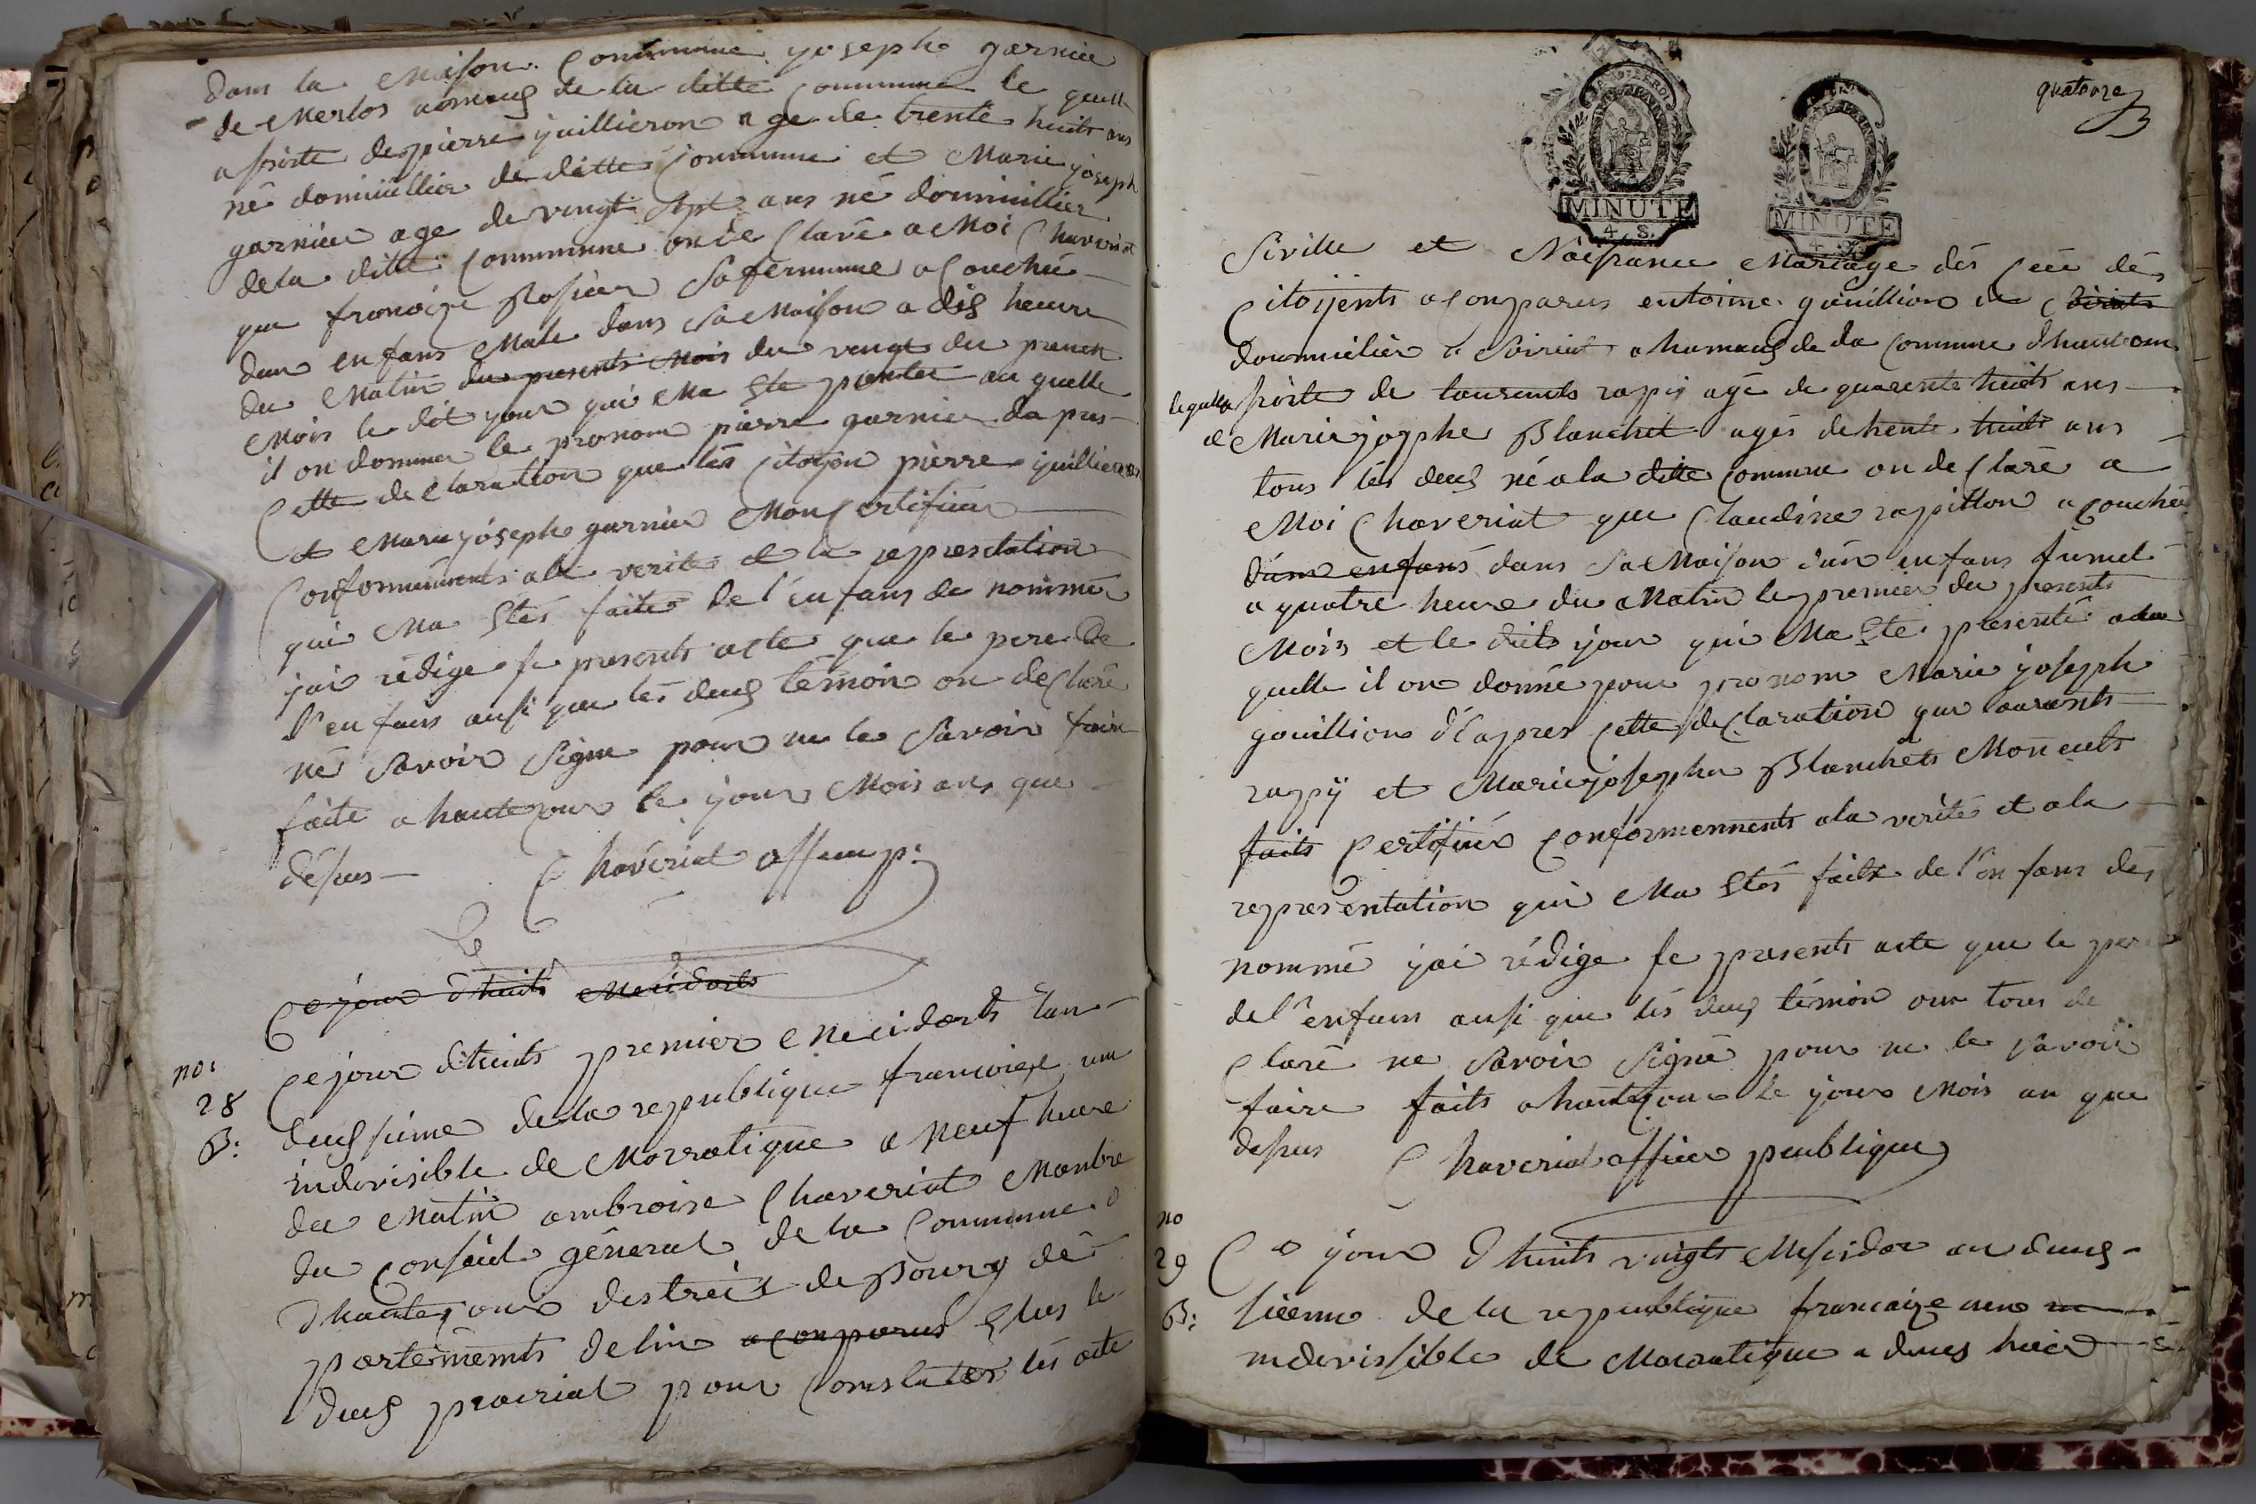 dans la Maison Commune joseph garnier
de Merlos aameaus de la ditte Commune le quelle
asiste de pierre juillieron age de trente huits ans
né domicillier de ditte Commune et Marie joseph
garnier age de vingt sept ans né domicillier
de la ditte Commune on de Claré a Moi Chaveriat
que francoize Rosier sa femme a Couchée
dun enfans Male dans sa Maison a dis heure
du Matin du presents Mois du vingt du presen
Mois le dit jour qui Ma Ete presenter au quelle
il on donner le pronom pierre garnier da pres
Cette de Claration que les Citoyen pierre juillieron
et Marie joseph garnier Mon Certifier
Conformements ala verite et la represdation
qui Ma Etes faite de l'enfans de nommer
jai redige se presents acte que le pere de
l'enfans ausi que les deus temoin on de Claré
né savoir signe pour ne le savoir faire
faite a hautecour le jour Mois ans que
desus Chaveriat off
Ce jour dhuits Mecidorts
no:
28
B:
Ce jour dhuits premier Mecidorts lan
deus sieme de la republique francoise une
indivisible de Mocratique a neuf heure
du Matin ambroise Chaveriat Manbre
du Conseil géneral de la Commune
dhautecour destreit de Bourg dé
partements de lin a Conparus Elus le
deus prairial pour Constater les acte
quatorze
MINUTE
4. S.
MINUTE
Siville et Naisance Mariage dés Ceée dés
Citoijents a Conparus entoine guillion de
Doumiélier a Soiriat ahameaus de la Commune dhautcour
le quelle asiste de laurents rapis agé de quarente huits ans
et Marie josphe Blanchet agés de trente huits ans
tous lés deus né a la ditte Commune on de Claré a
Moi Chaveriat que Claudine rapitton a Couchée
dune enfans dans sa Maison d'un enfans fumel
a quatre heure du Matin le premier du presents
Mois et le dits jour qui Ma Ete presenté a la
quelle il on donné pour pronom Marie joseph
gouillion d'lapres Cette de Claration que laurents
rapÿ et Marie josephe Blanchets Mon
faits Certifier Conformements ala verité et ala
représentation qui Ma Etés faite de l'enfans dés
nommé jai rédige se presents acte que le pere
de l'enfans ausi que lés deus témoin on tous de
Claré ne savoir Signé pour ne le savoir
faire faits a hautecour le jour Mois an que
desus Chaveriat offiier publique
no
29
B:
Ce jour dhuits vingts Mesidor an deus
sieeme de la republique francaize une
indivissible de Mocratique a deus heure